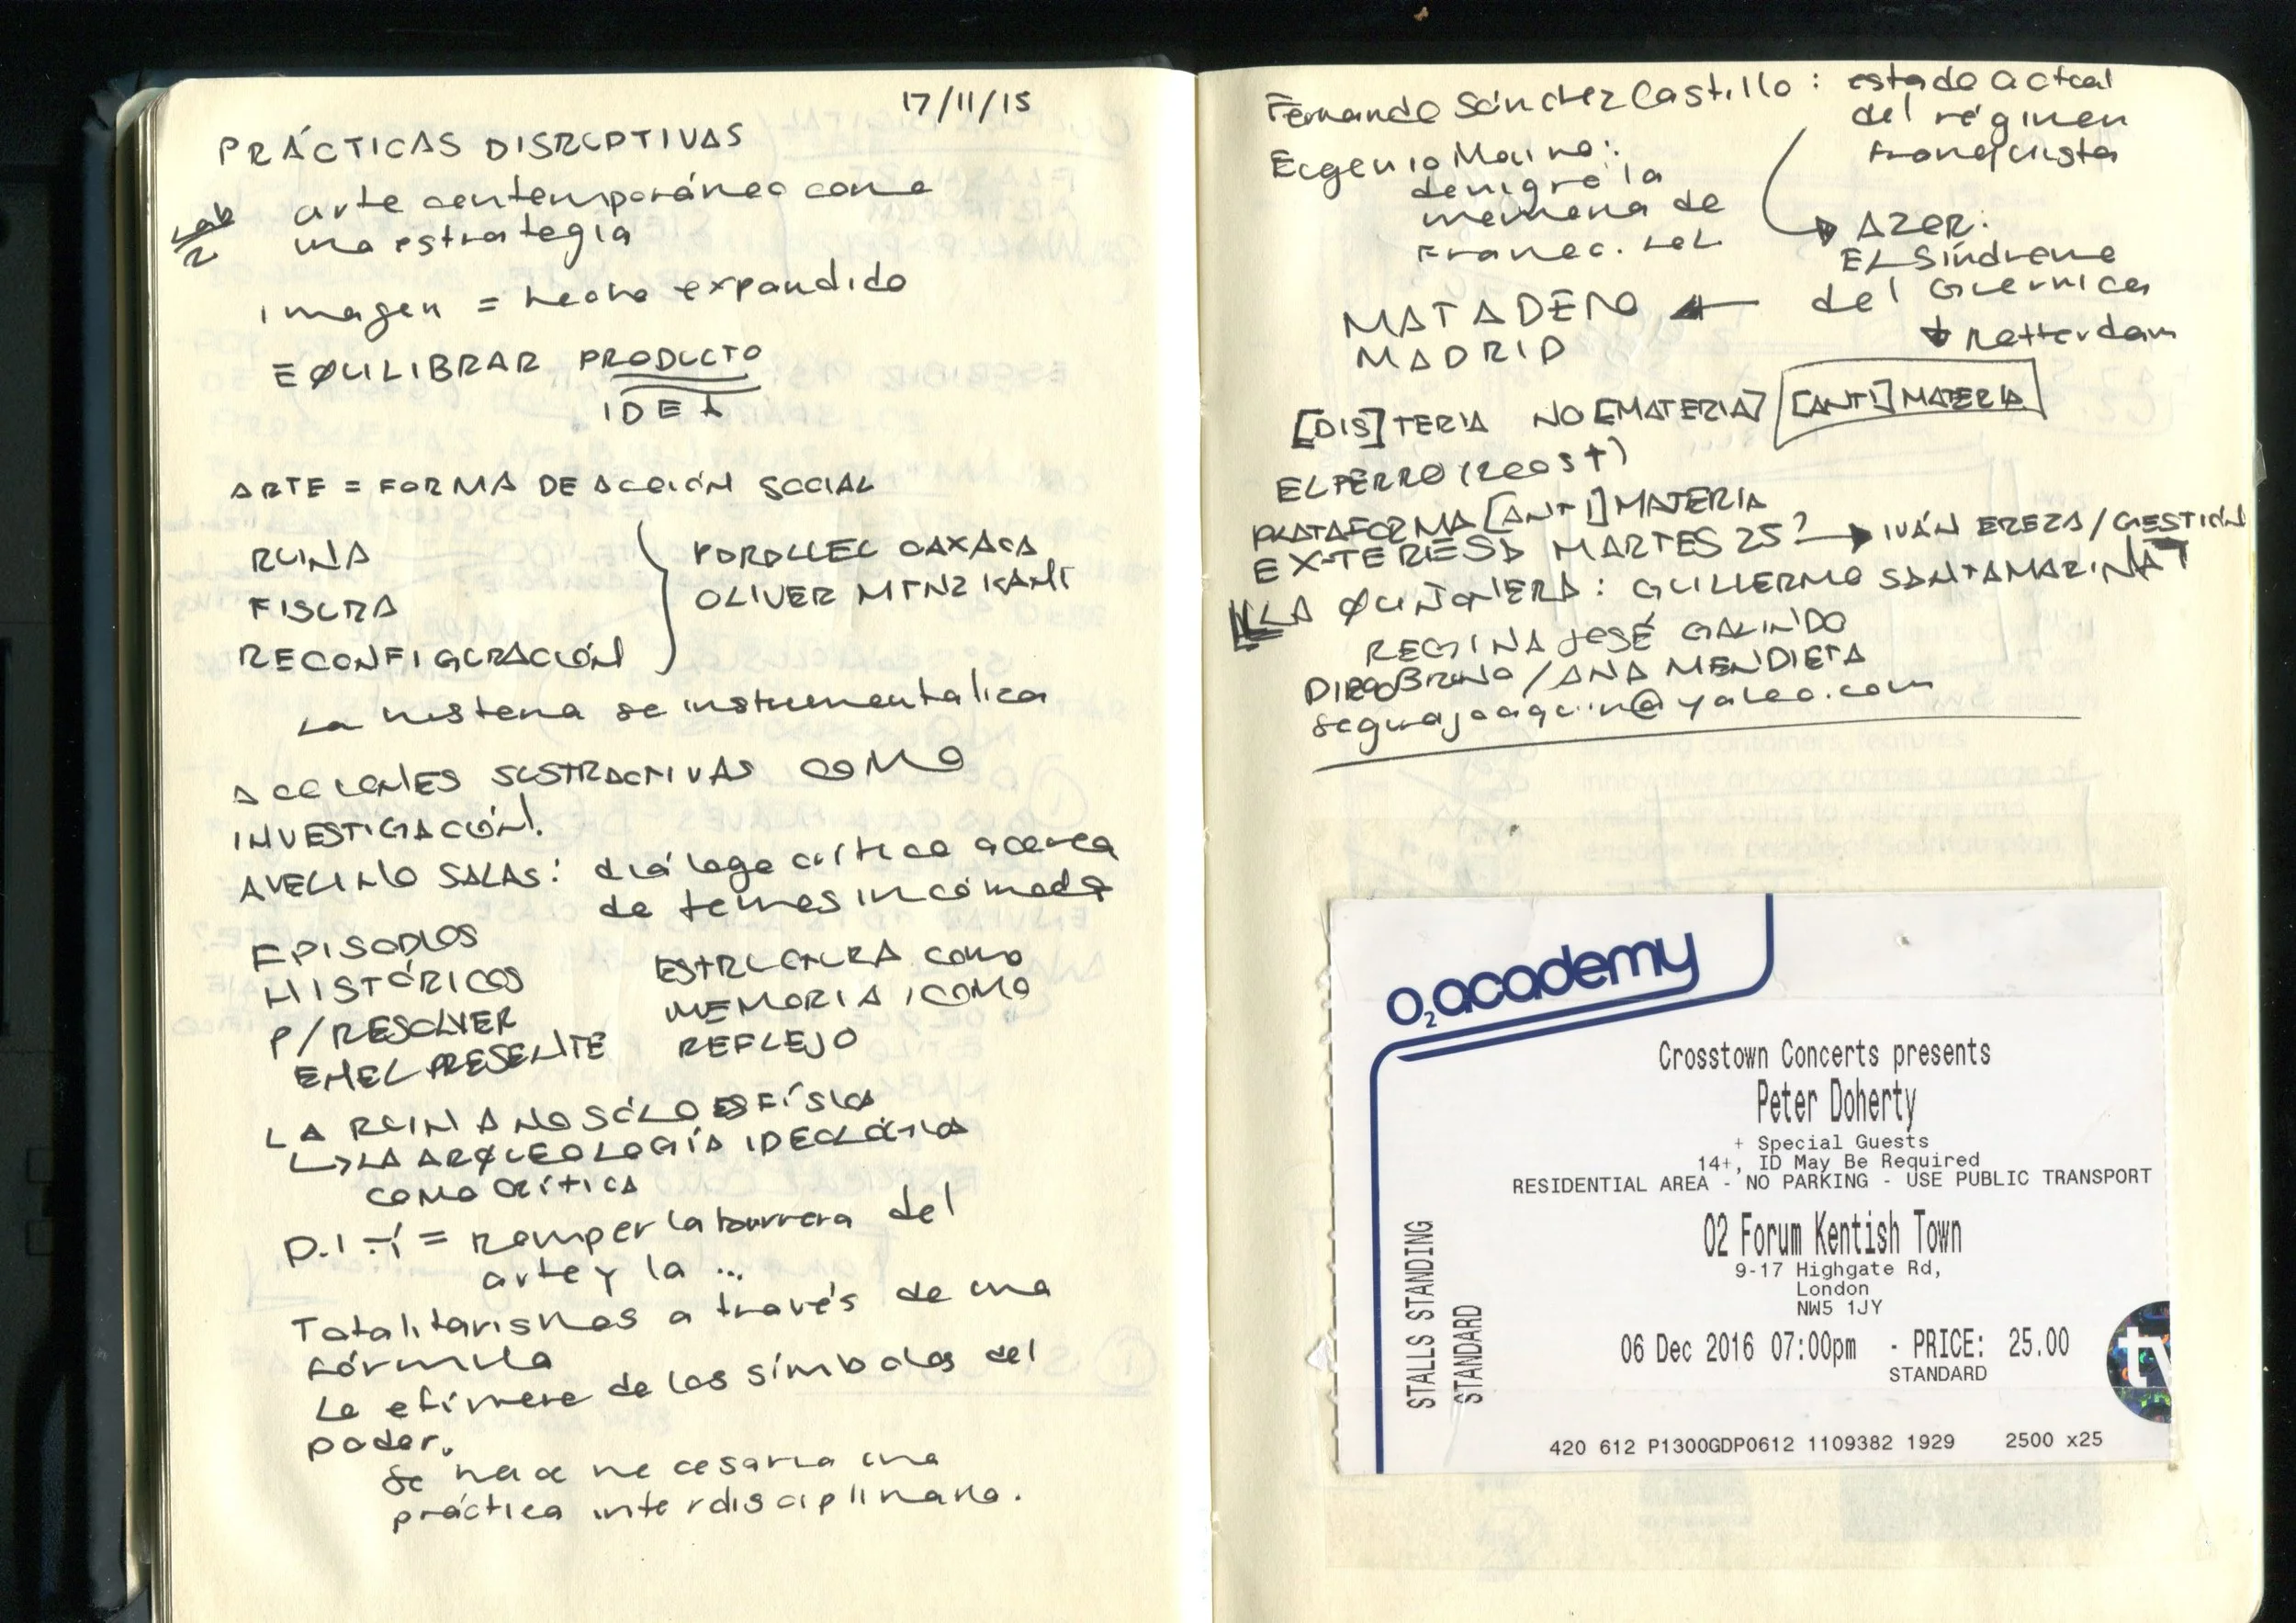 17/11/15
PRÁCTICAS DISRUPTIVAS
arte contemporáneo como
una estrategia
imagen = hecho expandido
EQUILIBRAR PRODUCTO
IDEA
ARTE = FORMA DE ACCIÓN SOCIAL
RUINA
FISURA
RECONFIGURACIÓN
OAXACA
OLIVER MTNZ KANDT
La historia se instrumentaliza
ACCIONES SUSTRACTIVAS COMO
INVESTIGACIÓN.
AVELINO SALAS: diálogo crítico acerca
de temas incómodos
EPISODIOS
HISTÓRICOS
P/RESOLVER
EN EL PRESENTE
ESTRUCTURA COMO
MEMORIA / COMO
REFLEJO
LA RUINA NO SÓLO ES FÍSICA
LA ARQUEOLOGÍA IDEOLÓGICA
COMO CRÍTICA
= romper la barrera del
arte y la ...
Totalitarismos a través de una
fórmula
Lo efímero de los símbolos del
poder.
Se hace necesaria una
práctica interdisciplinaria.
Fernando Sánchez Castillo: estado actual
del régimen
franquista
Eugenio Merino:
denigró la
memoria de
Franco. LOL
AZER:
EL Síndrome
del Guernica
Rotterdam
MATADERO
MADRID
[DIS]TERIA NO[MATERIA] [ANTI]MATERIA
EL PERRO
PLATAFORMA [ANTI]MATERIA
EX-TERESA MARTES 25? IVÁN / GESTIÓN
LA QUIÑONERA: GUILLERMO SANTAMARINA
REGINA JOSÉ GALINDO
DIEGO BRUNO / ANA MENDIETA
segurajoaquin@yahoo.com
O2 academy
Crosstown Concerts presents
Peter Doherty
+ Special Guests
14+, ID May Be Required
RESIDENTIAL AREA - NO PARKING - USE PUBLIC TRANSPORT
O2 Forum Kentish Town
9-17 Highgate Rd,
London
NW5 1JY
06 Dec 2016 07:00pm - PRICE: 25.00
STANDARD
STALLS STANDING
STANDARD
420 612 P1300GDP0612 1109382 1929 2500 x25